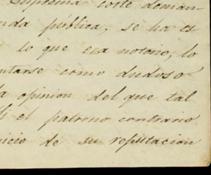 Suprema corte deman-
nda publica, se ha es
lo que era notorio, lo
ntarse como dudoso
la opinion del que tal
si el patrono contrario
icio de su reputacion